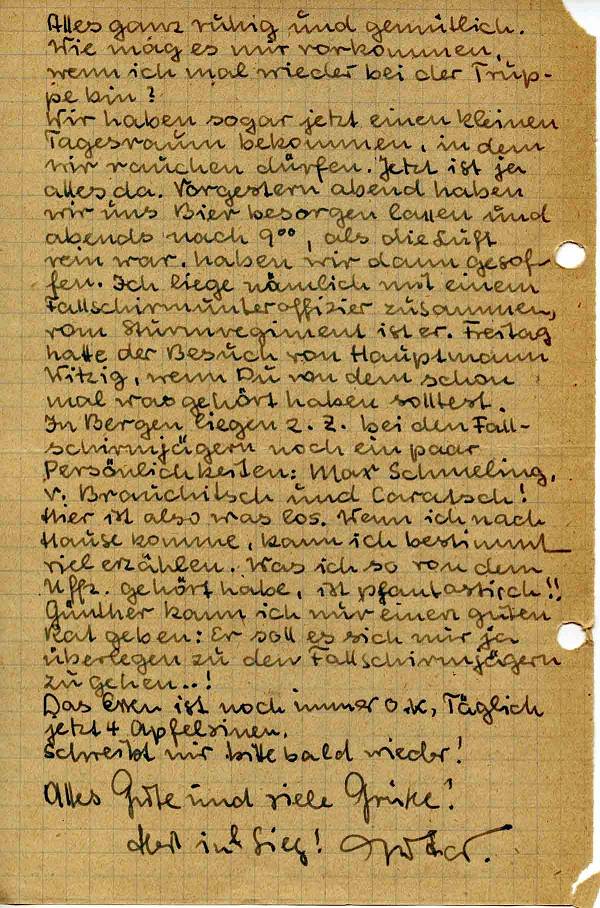 Alles ganz ruhig und gemütlich.
Wie mag es mir vorkommen,
wenn ich mal wieder bei der Trup-
pe bin?
Wir haben sogar jetzt einen kleinen
Tagesraum bekommen, in dem
wir rauchen dürfen. Jetzt ist ja
alles da. Vorgestern abend haben
wir uns Bier besorgen lassen und
abends nach 9⁰⁰, als die Luft
rein war, haben wir dann gesof-
fen. Ich liege nämlich mit einem
Fallschirmunteroffizier zusammen,
vom Sturmregiment ist er. Freitag
hatte der Besuch von Hauptmann
Witzig, wenn Du von dem schon
mal was gehört haben solltest.
In Bergen liegen z. Z. bei den Fall-
schirmjägern noch ein paar
Persönlichkeiten: Max Schmeling,
v. Brauchitsch und Caratsch!
Hier ist also was los. Wenn ich nach
Hause komme, kann ich bestimmt
viel erzählen. Was ich so von dem
Uffz. gehört habe, ist phantastisch!!
Günther kann ich nur einen guten
Rat geben: Er soll es sich nur ja
überlegen zu den Fallschirmjägern
zu gehen..!
Das Essen ist noch immer o.k., Täglich
jetzt 4 Apfelsinen.
Schreibt mir bitte bald wieder!
Alles Gute und viele Grüße!
Heil und Sieg!